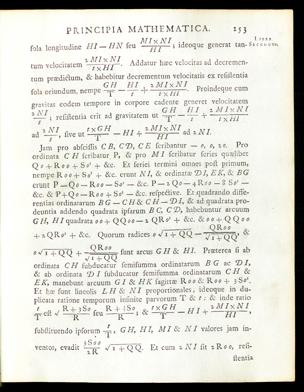 PRINCIPIA MATHEMATICA. 253
LIBER
SECUNDUS.
sola longitudine HI — HN seu MI×NI/HI; ideoque generat tan-
tum velocitatem 2MI×NI/t×HI. Addatur hæc velocitas ad decremen-
tum prædictum, & habebitur decrementum velocitatis ex resistentia
sola oriundum, nempe GH/T — HI/t + 2MI×NI/t×HI. Proindeque cum
gravitas eodem tempore in corpore cadente generet velocitatem
2NI/t; resistentia erit ad gravitatem ut GH/T — HI/t + 2MI×NI/t×HI
ad 2NI/t, sive ut t×GH/T — HI + 2MI×NI/HI ad 2NI.
Jam pro abscissis CB, CD, CE scribantur —o, o, 2o. Pro
ordinata CH scribatur P, & pro MI scribatur series quælibet
Qo + Roo + So³ + &c. Et seriei termini omnes post primum,
nempe Roo + So³ + &c. erunt NI, & ordinatæ DI, EK, & BG
erunt P — Qo — Roo — So³ — &c. P — 2Qo — 4Roo — 8So³ —
&c. & P + Qo — Roo + So³ — &c. respective. Et quadrando diffe-
rentias ordinatarum BG — CH & CH — DI, & ad quadrata pro-
deuntia addendo quadrata ipsarum BC, CD, habebuntur arcuum
GH, HI quadrata oo + QQoo — 2QRo³ + &c. & oo + QQoo
+ 2QRo³ + &c. Quorum radices o√1+QQ — QRoo/√1+QQ, &
o√1+QQ + QRoo/√1+QQ sunt arcus GH & HI. Præterea si ab
ordinata CH subducatur semisumma ordinatarum BG ac DI,
& ab ordinata DI subducatur semisumma ordinatarum CH &
EK, manebunt arcuum GI & HK sagittæ Roo & Roo + 3So³.
Et hæ sunt lineolis LH & NI proportionales, ideoque in du-
plicata ratione temporum infinite parvorum T & t: & inde ratio
t/T est √R+3So/R seu R+³⁄₂So/R; & t×GH/T — HI + 2MI×NI/HI,
substituendo ipsorum t/T, GH, HI, MI & NI valores jam in-
ventos, evadit 3Soo/2R √1+QQ. Et cum 2NI sit 2Roo, resi-
stentia